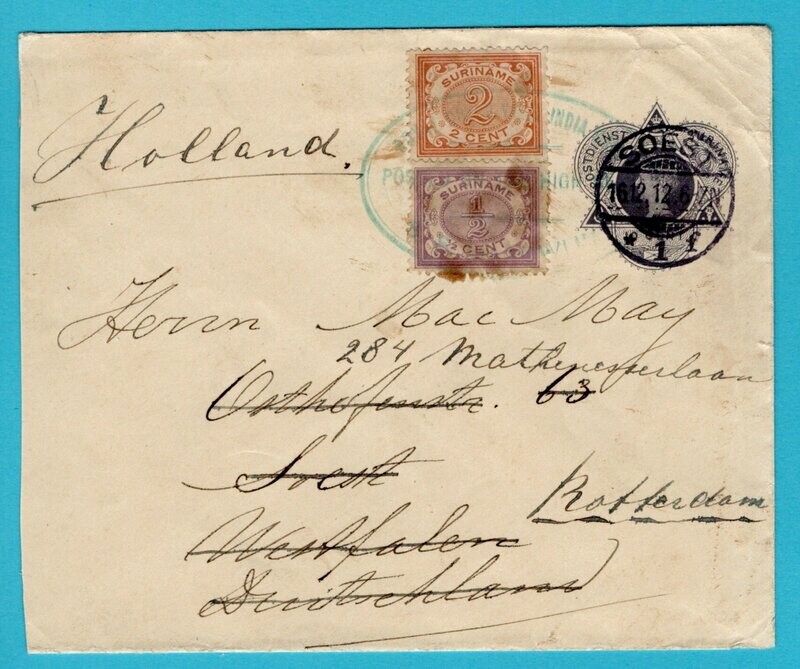 Holland.
SURINAME
2
2 CENT
SURINAME
1/2
1/2 CENT
POSTDIENST
SOEST
16.12.12.6-7N
* 1 f
Herrn Mac May
284 Mathenesserlaan
Osthofenstr. 63
Soest
Westfalen
Duitschland
Rotterdam